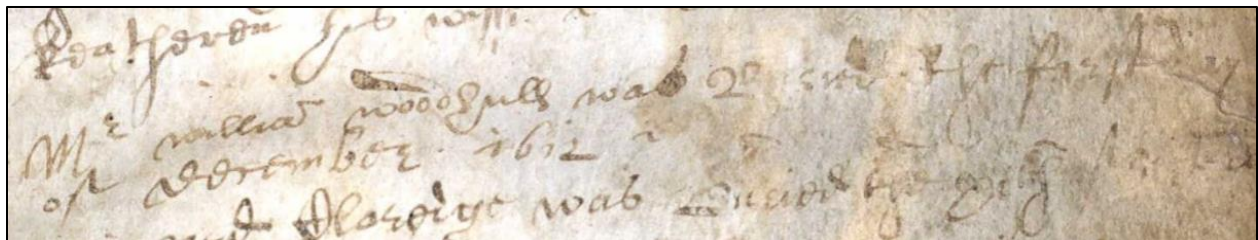 Keatheren his wiffe
Mr william woodhull was Buried the first day
off December 1612
was Buried the